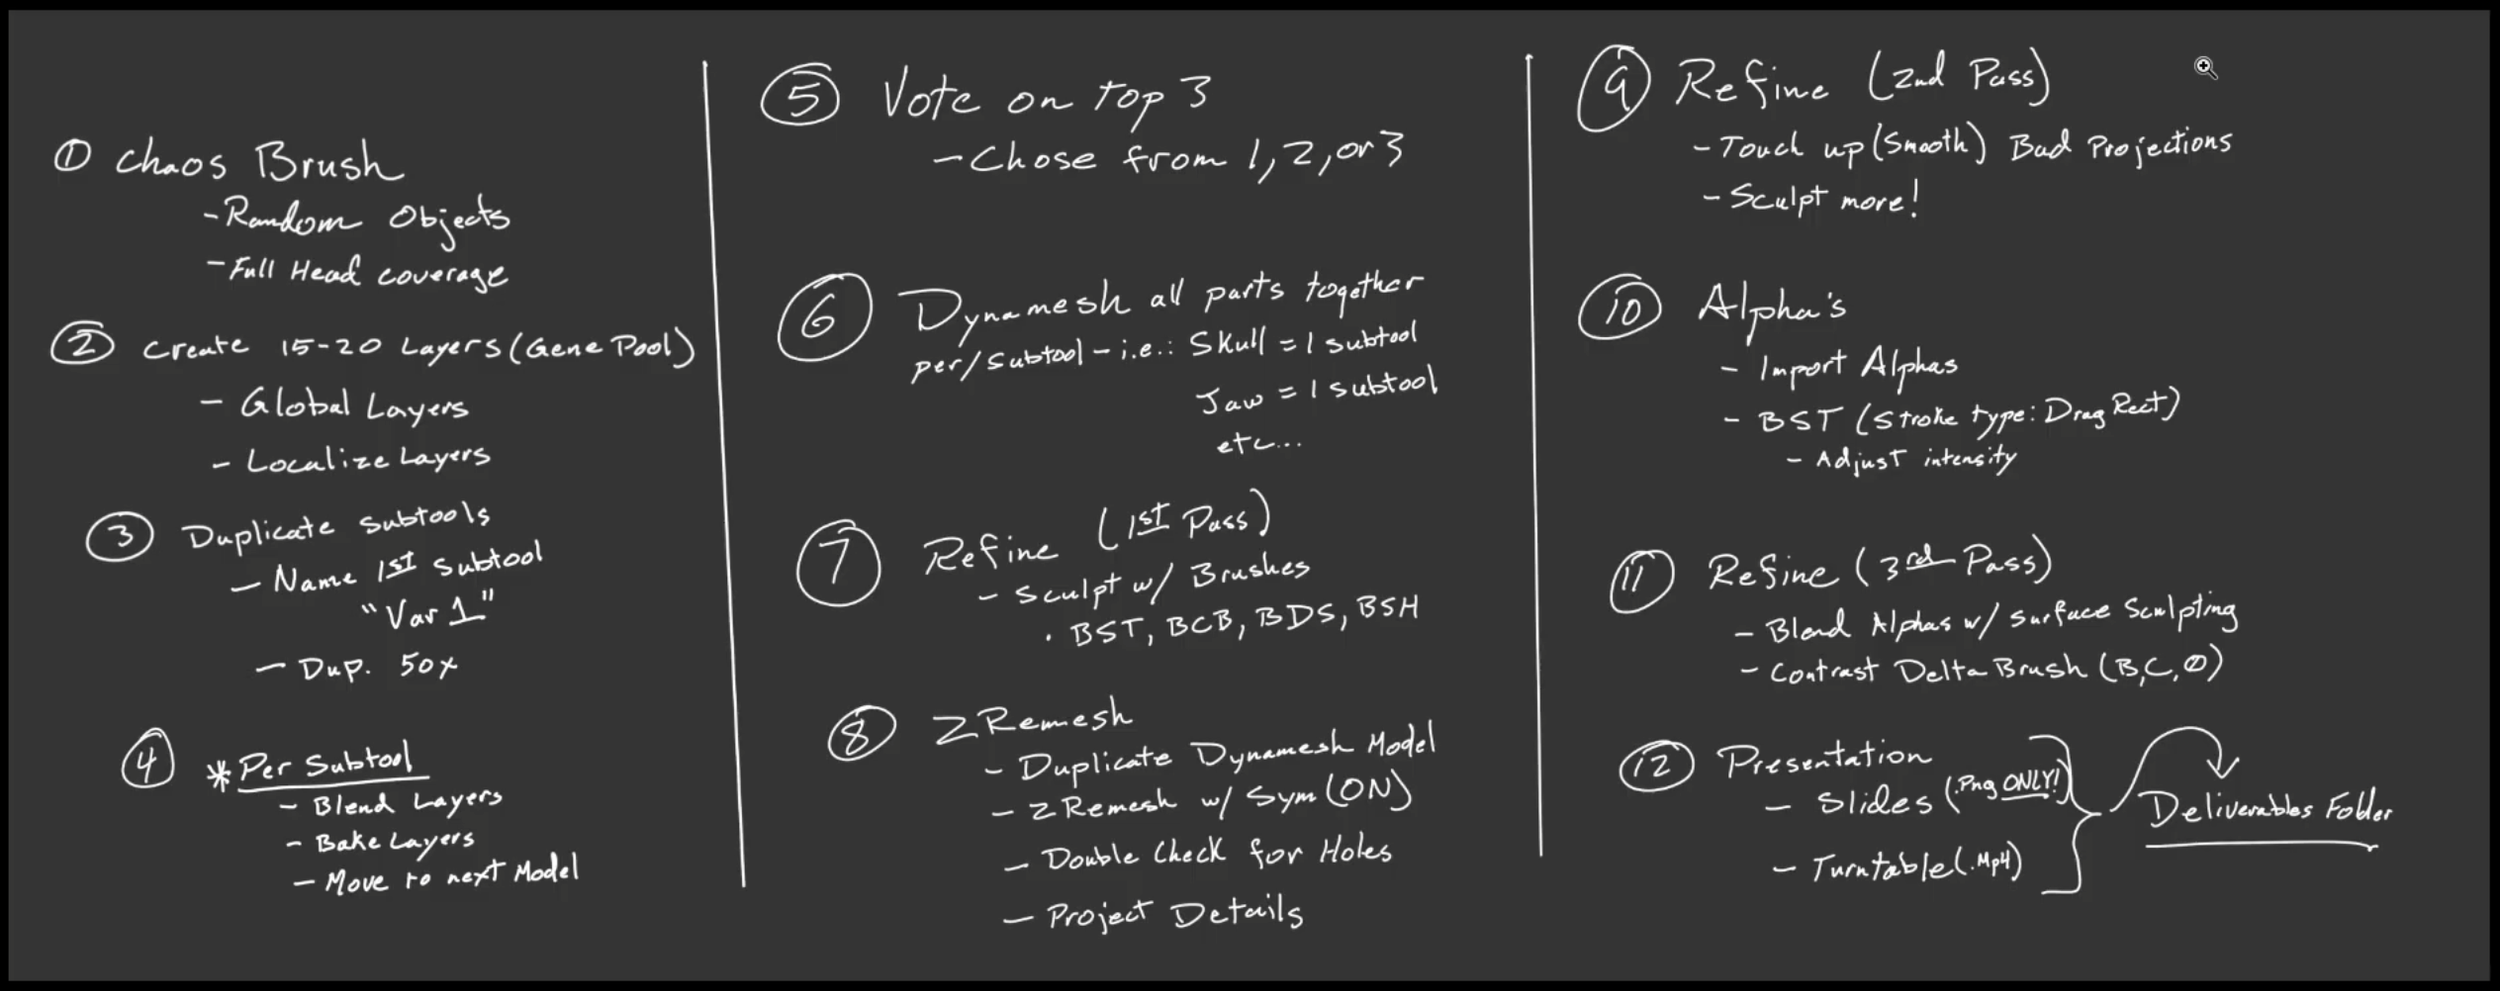 ① Chaos Brush
- Random Objects
- Full Head coverage
② Create 15-20 Layers (Gene Pool)
- Global Layers
- Localize Layers
③ Duplicate Subtools
- Name 1st Subtool
"Var 1"
- Dup. 50x
④ * Per Subtool
- Blend Layers
- Bake Layers
- Move to next Model
⑤ Vote on top 3
- Chose from 1, 2, or 3
⑥ Dynamesh all parts together
per/subtool - i.e.: Skull = 1 subtool
Jaw = 1 subtool
etc...
⑦ Refine (1st Pass)
- Sculpt w/ Brushes
· BST, BCB, BDS, BSH
⑧ ZRemesh
- Duplicate Dynamesh Model
- ZRemesh w/ Sym (ON)
- Double Check for Holes
- Project Details
⑨ Refine (2nd Pass)
- Touch up (Smooth) Bad Projections
- Sculpt more!
⑩ Alpha's
- Import Alphas
- BST (Stroke type: Drag Rect)
- Adjust intensity
⑪ Refine (3rd Pass)
- Blend Alphas w/ Surface Sculpting
- Contrast Delta Brush (B,C,O)
⑫ Presentation
- Slides (.Png ONLY!)
- Turntable (.Mp4)
Deliverables Folder